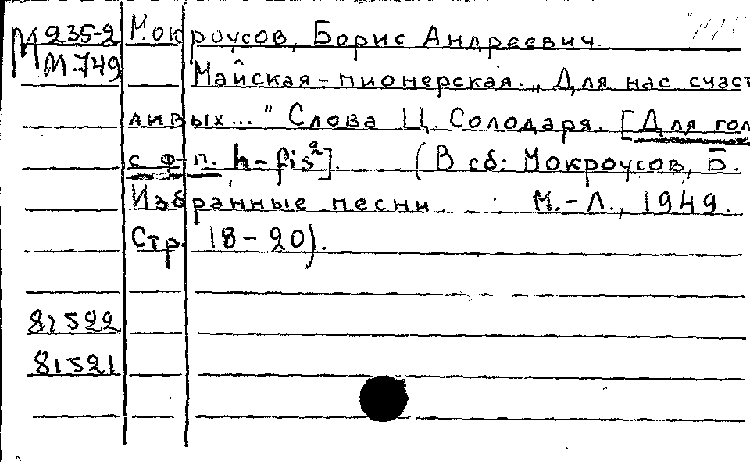 М 235-2 Мокроусов, Борис Андреевич.
М-749 Майская-пионерская. „Для нас счаст
ливых..." Слова Ц. Солодаря. [Для гол
с ф-п. h-fis²]. (В сб: Мокроусов, Б.
Избранные песни. М.-Л., 1949.
Стр. 18-20).
81522
81521